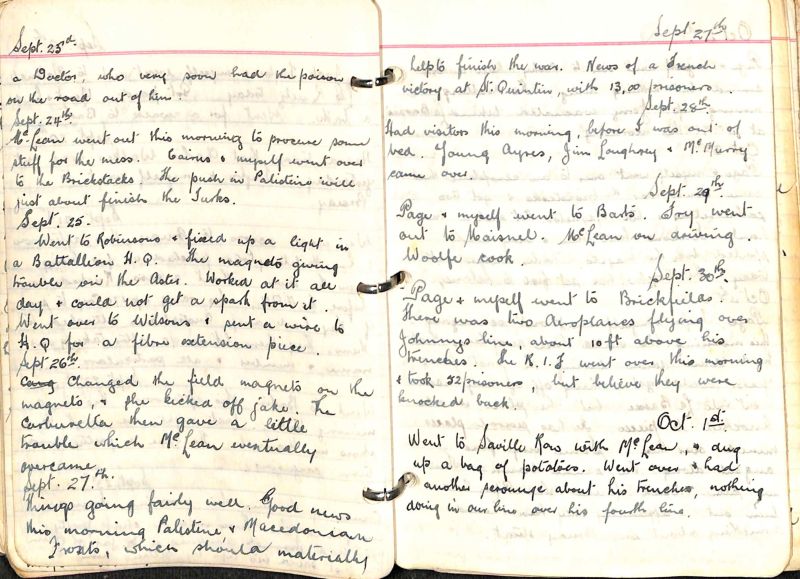 Sept. 23d.
a Doctor, who very soon had the poison
on the road out of him.
Sept. 24th.
McLean went out this morning to procure some
stuff for the mess. Cairns & myself went over
to the Brickstacks. The push in Palistine will
just about finish the Turks.
Sept. 25.
Went to Robinsons & fixed up a light in
a Battallion H.Q. The magneto giving
trouble on the Aster. Worked at it all
day & could not get a spark from it.
Went over to Wilsons & sent a wire to
H.Q for a fibre extension piece.
Sept 26th.
Changed the field magnets on the
magneto, & she kicked off jake. The
carburetta then gave a little
trouble which McLean eventually
overcame.
Sept. 27.th.
Things going fairly well. Good news
this morning Palistine & Macedonian
Fronts, which should materially
Sept 27th.
help to finish the war. News of a French
victory at St. Quintin, with 13,00 prisoners.
Sept. 28th.
Had visitors this morning, before I was out of
bed. Young Ayres, Jim Loughrey & McMurry
came over.
Sept. 29th.
Page & myself went to Barts. Fry went
out to Maisnel. McLean on driving.
Woolfe cook.
Sept. 30th.
Page & myself went to Brickfields.
There was two Aeroplanes flying over
Johnnys line, about 10ft above his
trenches. The K.I.F went over this morning
& took 52 prisoners, but believe they were
knocked back.
Oct. 1st.
Went to Saville Row with McLean, & dug
up a bag of potatoes. Went over & had
another scrounge about his trenches, nothing
doing in our line over his fourth line.